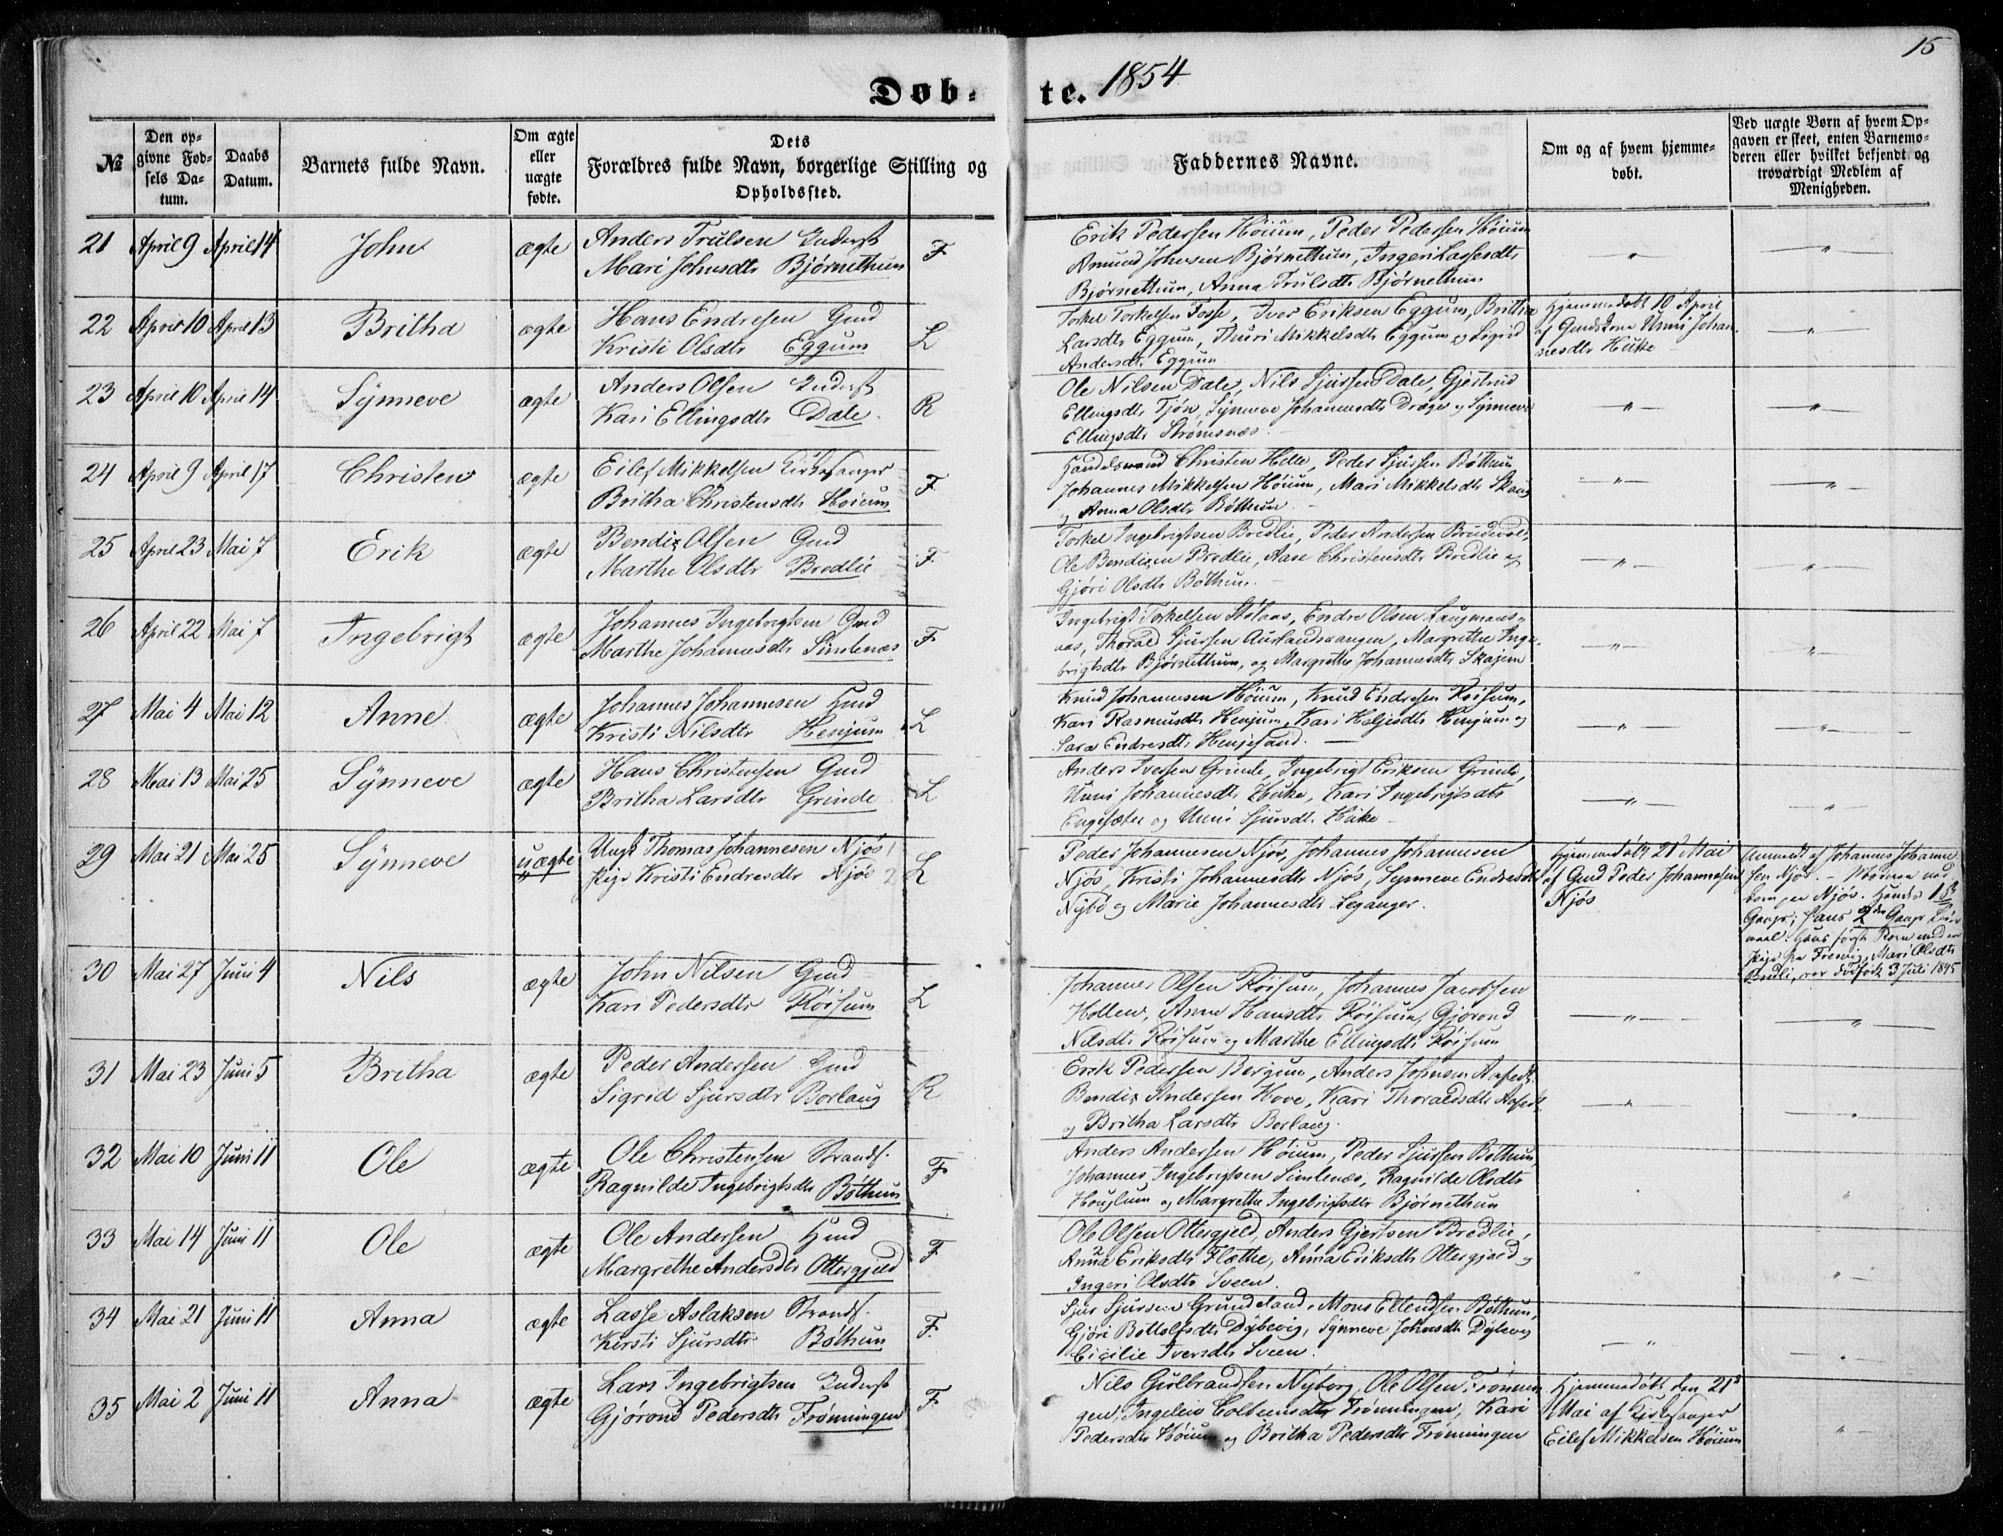 15
Døb-te. 1854
№
Den opgivne Fødsels Datum.
Daabs Datum.
Barnets fulde Navn.
Om ægte eller uægte fødte.
Dets Forældres fulde Navn, borgerlige Stilling og Opholdssted.
Faddernes Navne.
Om og af hvem hjemmedøbt.
Ved uægte Børn af hvem Opgaven er skeet, enten Barnemoderen eller hvilket bekjendt og troværdigt Medlem af Menigheden.
21 April 9 April 14 John ægte
Anders Trulsen Inderst
Mari Johnsdtr Bjørnethun F
Erik Pedersen Høium, Peder Pedersen Høium
Amund Johnsen Bjørnethun, Ingeri Lassesdtr
Bjørnethun, Anna Trulsdtr Bjørnethun
22 April 10 April 13 Britha ægte
Hans Endresen Gmd
Kristi Olsdtr Eggum L
Torkel Torkelsen Fosse, Iver Eriksen Eggum, Britha
Larsdtr Eggum, Thuri Mikkelsdtr Eggum og Sigrid
Andersdtr Eggum
Hjemmedøbt 10 April
af Gmdskone Unni Johan-
nesdtr Huke
23 April 10 April 14 Synneve ægte
Anders Olsen Inderst
Kari Ellingsdtr Dale R
Ole Nilsen Dale, Nils Sjursen Dale, Gjertrud
Ellingsdtr Tjøn, Synneve Johannesdtr Dræge og Synneve
Ellingsdtr Strømsnæs
24 April 9 April 17 Christen ægte
Eilef Mikkelsen Kirkesanger
Britha Christensdtr Høium F
Handelsmand Christen Helle, Peder Sjursen Bøthun
Johannes Mikkelsen Høium, Mari Mikkelsdtr
og Anna Olsdtr Bøthun
25 April 23 Mai 7 Erik ægte
Bendix Olsen Gmd
Marthe Olsdtr Bredlie F
Torkel Ingebrigtsen Bredlie, Peder Andersen
Ole Bendixen Bredlie, Aase Christensdtr Bredlie og
Gjøri Olsdtr Bøthun
26 April 22 Mai 7 Ingebrigt ægte
Johannes Ingebrigtsen Gmd
Marthe Johannesdtr Simlenæs F
Ingebrigt Torkelsen, Endre Olsen Laugmans-
næs, Thorald Sjursen Aurlandsvangen, Margrethe Inge-
brigtsdtr Bjørnethun, og Margrethe Johannesdtr Skajem
27 Mai 4 Mai 12 Anne ægte
Johannes Johannesen Gmd
Kristi Nilsdtr Henjum L
Knud Johannesen Høium, Knud Endresen Røisum,
Kari Rasmusdtr Henjum, Kari Helgesdtr Henjum og
Sara Endresdtr Henjesand
28 Mai 13 Mai 25 Synneve ægte
Hans Christensen Gmd
Britha Larsdtr Grinde L
Anders Iversen Grinde, Ingebrigt Eriksen Grinde,
Unni Johannesdtr Huke, Kari Ingebrigtsdtr
Engesæter og Unni Sjursdtr Huke
29 Mai 21 Mai 25 Synneve uægte
Ungk Thomas Johannesen Njøs 1
Pige Kristi Endresdtr Njøs 2 L
Peder Johannesen Njøs, Johannes Johannesen
Njøs, Kristi Johannesdtr Njøs, Synneve Endresdtr
Nybø og Marie Johannesdtr Leganger
Hjemmedøbt 21 Mai
af Gmd Peder Johannesen
Njøs
Anmeldt af Johannes Johanne-
sen Njøs
30 Mai 27 Juni 4 Nils ægte
John Nilsen Gmd
Kari Pedersdtr Røisum L
Johannes Olsen Røisum, Johannes Jacobsen
Hollen, Anna Hansdtr Røisum, Gjørond
Nilsdtr Røisum og Marthe Ellingsdtr Røisum
31 Mai 23 Juni 5 Britha ægte
Peder Andersen Gmd
Sigrid Sjursdtr Borlaug R
Erik Pedersen Bergum, Anders Johnsen Aafedt
Bendix Andersen Hove, Kari Thoraldsdtr Aafedt
og Britha Larsdtr Borlaug
32 Mai 10 Juni 11 Ole ægte
Ole Christensen Strands.
Ragnilde Ingebrigtsdtr Bøthun F
Anders Andersen Høium, Peder Sjursen Bøthun
Johannes Ingebrigtsen Simlenæs, Ragnilde Olsdtr
Houglum og Margrethe Ingebrigtsdtr Bjørnethun
33 Mai 14 Juni 11 Ole ægte
Ole Andersen Hmd
Margrethe Andersdtr Ottergjeld F
Ole Olsen Ottergjeld, Anders Gjertsen Bredlie,
Anna Eriksdtr Flæthe, Anna Eriksdtr Ottergjeld og
Ingeri Olsdtr Sveen
34 Mai 21 Juni 11 Anna ægte
Lasse Aslaksen Strands.
Kersti Sjursdtr Bøthun F
Sjur Sjursen Grundeland, Mons Ellendsen Bøthun,
Gjøri Bottolfsdtr Dybevig, Synneve Johnsdtr Dybevig
Cicilie Iversdtr Sveen
35 Mai 2 Juni 11 Anna ægte
Lars Ingebrigtsen Inderst
Gjørond Pedersdtr Frønningen F
Nils Gulbrandsen Nyborg, Ole Olsen Frønnin-
gen, Ingeleiv Frønningen, Kari
Pedersdtr Høium og Britha Pedersdtr Frønningen
Hjemmedøbt den 21
Mai af Kirkesanger
Eilef Mikkelsen Høium